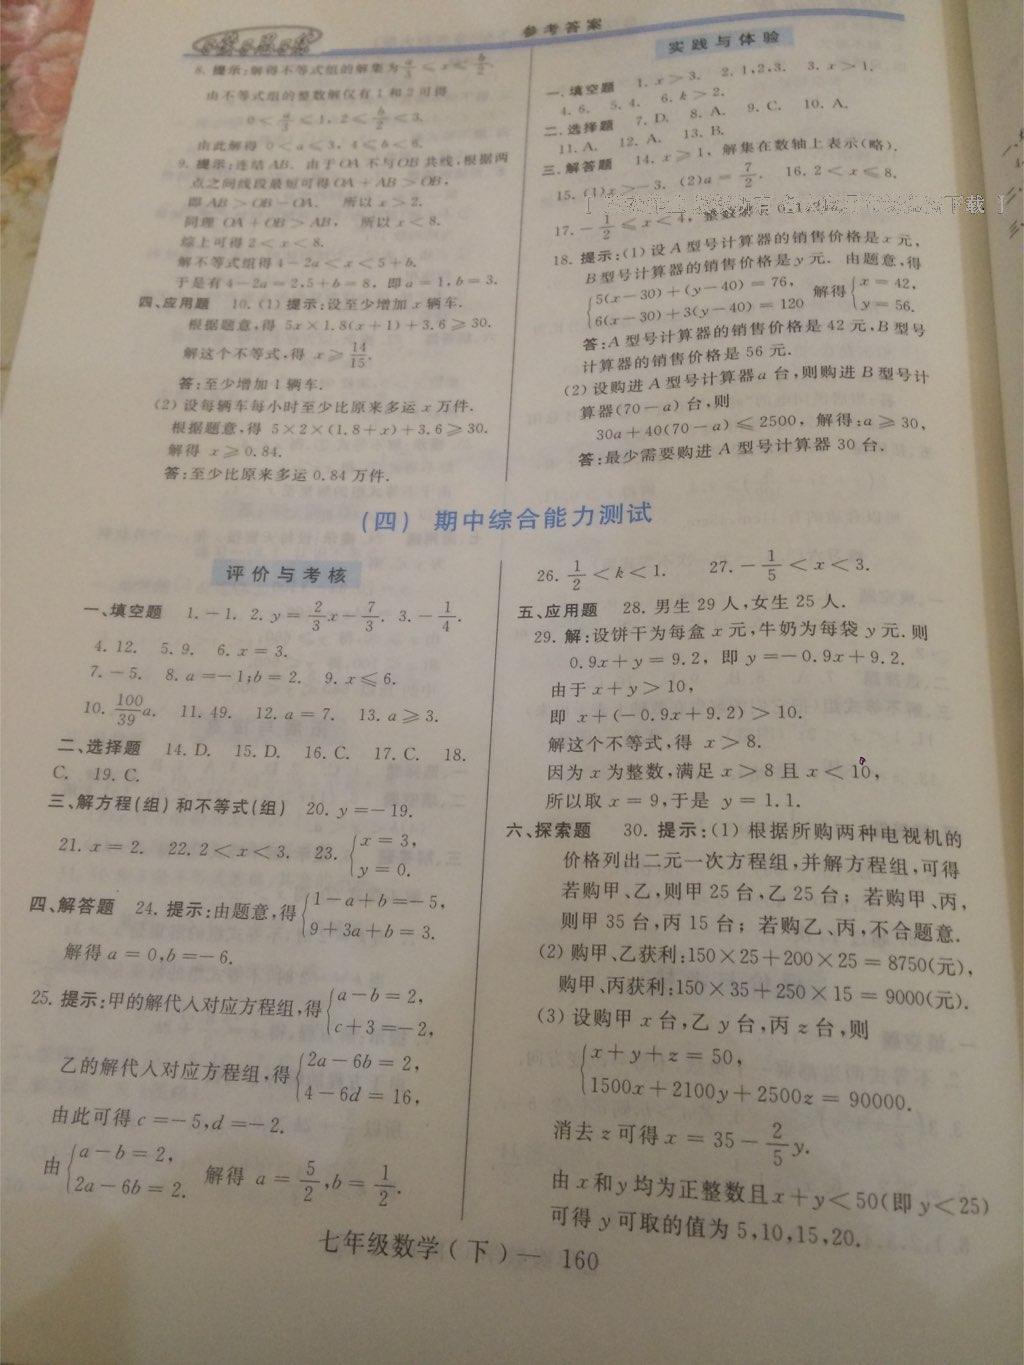 参考答案
8. 提示:解得不等式组的解集为 a/3 < x ≤ b/2.
由不等式组的整数解仅有 1 和 2 可得
0 < a/3 ≤ 1, 2 ≤ b/2 < 3.
由此解得 0 < a ≤ 3, 4 ≤ b < 6.
9. 提示:连结 AB. 由于 OA 不与 OB 共线,根据两
点之间线段最短可得 OA + AB > OB,
即 AB > OB − OA. 所以 x > 2.
同理 OA + OB > AB, 所以 x < 8.
综上可得 2 < x < 8.
解不等式组得 4 − 2a < x < 5 + b.
于是有 4 − 2a = 2, 5 + b = 8, 即 a = 1, b = 3.
四、应用题 10. (1) 提示:设至少增加 x 辆车.
根据题意,得 5x × 1.8(x + 1) + 3.6 ≥ 30.
解这个不等式,得 x ≥ 14/15.
答:至少增加 1 辆车.
(2) 设每辆车每小时至少比原来多运 x 万件.
根据题意,得 5 × 2 × (1.8 + x) + 3.6 ≥ 30.
解得 x ≥ 0.84.
答:至少比原来多运 0.84 万件.
实践与体验
一、填空题 1. x > 3. 2. 1,2,3. 3. x > 1.
4. 6. 5. 4. 6. k > 2.
二、选择题 7. D. 8. A. 9. C. 10. A.
11. A. 12. A. 13. B.
三、解答题 14. x ≥ 1, 解集在数轴上表示(略).
15. (1) x > −3. (2) a = 7/2. 16. 2 < x ≤ 8.
下载 ]
17. − 1/2 ≤ x < 4, 整数解
18. 提示:(1) 设 A 型号计算器的销售价格是 x 元,
B 型号计算器的销售价格是 y 元. 由题意,得
{5(x − 30) + (y − 40) = 76, 解得 {x = 42,
6(x − 30) + 3(y − 40) = 120 y = 56.
答:A 型号计算器的销售价格是 42 元,B 型号
计算器的销售价格是 56 元.
(2) 设购进 A 型号计算器 a 台,则购进 B 型号计
算器(70 − a) 台,则
30a + 40(70 − a) ≤ 2500, 解得:a ≥ 30,
答:最少需要购进 A 型号计算器 30 台.
(四) 期中综合能力测试
评价与考核
一、填空题 1. −1. 2. y = 2/3 x − 7/3. 3. − 1/4.
4. 12. 5. 9. 6. x = 3.
7. −5. 8. a = −1;b = 2. 9. x ≤ 6.
10. 100/39 a. 11. 49. 12. a = 7. 13. a ≥ 3.
二、选择题 14. D. 15. D. 16. C. 17. C. 18.
C. 19. C.
三、解方程(组) 和不等式(组) 20. y = −19.
21. x = 2. 22. 2 < x < 3. 23. {x = 3,
y = 0.
四、解答题 24. 提示:由题意,得 {1 − a + b = −5,
9 + 3a + b = 3.
解得 a = 0,b = −6.
25. 提示:甲的解代入对应方程组,得 {a − b = 2,
c + 3 = −2,
乙的解代入对应方程组,得 {2a − 6b = 2,
4 − 6d = 16,
由此可得 c = −5,d = −2.
由 {a − b = 2, 解得 a = 5/2, b = 1/2.
2a − 6b = 2.
26. 1/2 < k < 1. 27. − 1/5 < x < 3.
五、应用题 28. 男生 29 人,女生 25 人.
29. 解:设饼干为每盒 x 元,牛奶为每袋 y 元. 则
0.9x + y = 9.2, 即 y = −0.9x + 9.2.
由于 x + y > 10,
即 x + (−0.9x + 9.2) > 10.
解这个不等式,得 x > 8.
因为 x 为整数,满足 x > 8 且 x < 10,
所以取 x = 9,于是 y = 1.1.
六、探索题 30. 提示:(1) 根据所购两种电视机的
价格列出二元一次方程组,并解方程组,可得
若购甲、乙,则甲 25 台,乙 25 台; 若购甲、丙,
则甲 35 台,丙 15 台; 若购乙、丙,不合题意.
(2) 购甲、乙获利:150 × 25 + 200 × 25 = 8750(元),
购甲、丙获利:150 × 35 + 250 × 15 = 9000(元).
(3) 设购甲 x 台,乙 y 台,丙 z 台,则
{x + y + z = 50,
1500x + 2100y + 2500z = 90000.
消去 z 可得 x = 35 − 2/5 y.
由 x 和 y 均为正整数且 x + y < 50(即 y < 25)
可得 y 可取的值为 5,10,15,20.
七年级数学(下) — 160